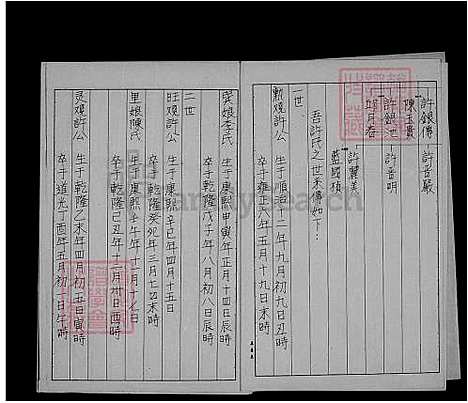 許銀傳 許晉嚴
陳玉貴
許銀池 許晋明
邱月春
許麗美
藍國楨
吾許氏之世系傳如下：
一世
勳娘許公 生于順治十二年九月初九日丑時
卒于雍正六年五月十九日未時
李氏 生于康熙甲寅年正月十四日辰時
卒于乾隆戊子年八月初八日辰時
二世
旺娘許公 生于康熙辛巳年四月十五日
卒于乾隆癸死年三月七日未時
里娘陳氏 生于康熙壬午年十一月十六日
卒于乾隆己丑年十二月廿日酉時
許公 生于乾隆乙未年四月初五日寅時
卒于道光丁酉年五月初一日午時